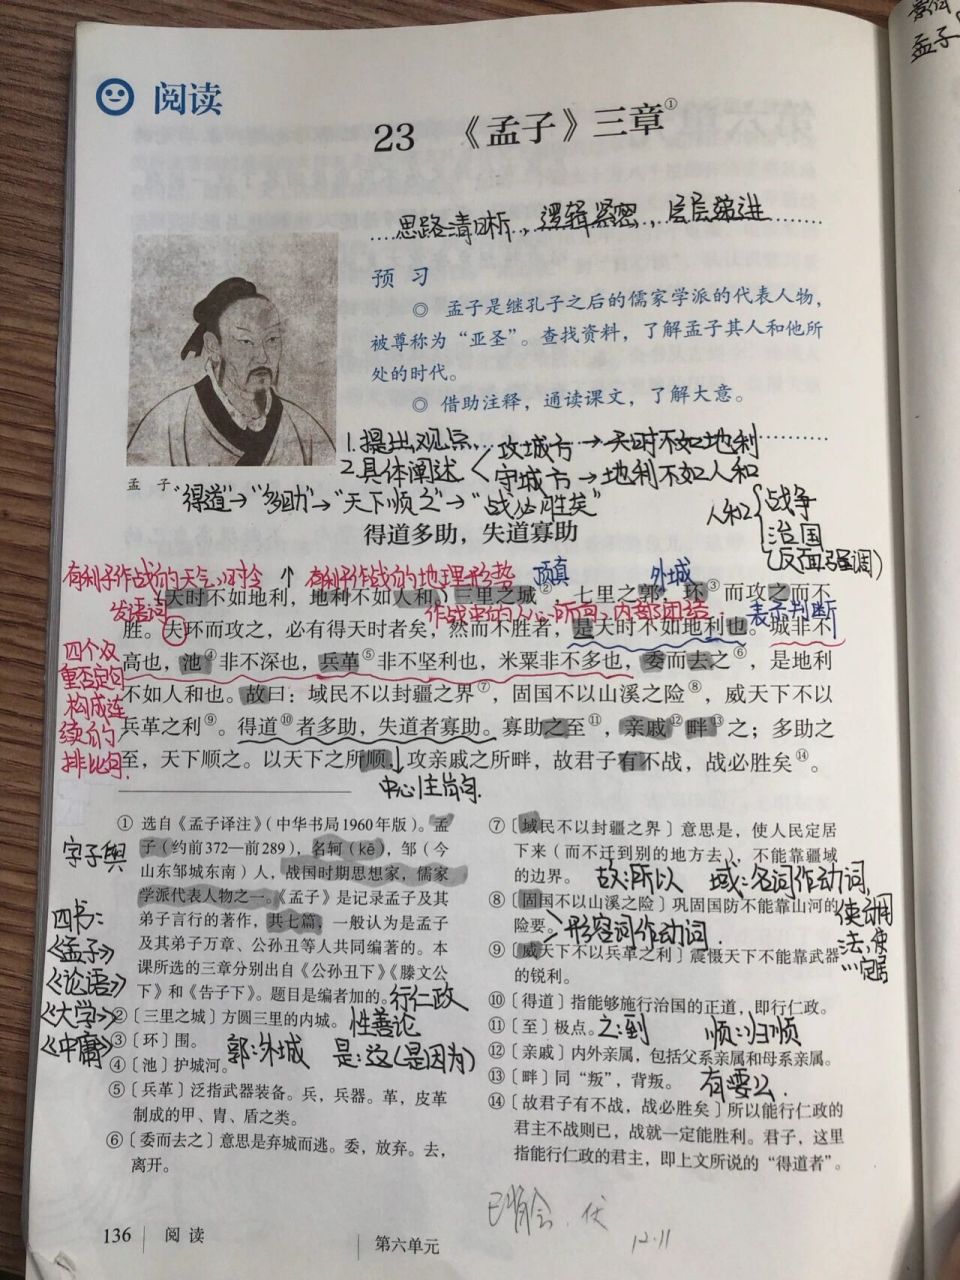 阅读
23 《孟子》三章①
思路清晰，逻辑紧密，层层递进
预 习
◎ 孟子是继孔子之后的儒家学派的代表人物，
被尊称为“亚圣”。查找资料，了解孟子其人和他所
处的时代。
◎ 借助注释，通读课文，了解大意。
1.提出观点
2.具体阐述
攻城方→天时不如地利
守城方→地利不如人和
孟 子
“得道”→“多助”→“天下顺之”→“战必胜矣”
人和
战争
治国
(反面强调)
得道多助，失道寡助
有利于作战的天气、时令
有利于作战的地理形势
顶真
外城
天时不如地利，地利不如人和。三里之城②，七里之郭，环③而攻之而不
发语词
作战中的人心所向、内部团结
表示判断
胜。夫环而攻之，必有得天时者矣，然而不胜者，是天时不如地利也。城非不
高也，池④非不深也，兵革⑤非不坚利也，米粟非不多也，委而去之⑥，是地利
不如人和也。故曰：域民不以封疆之界⑦，固国不以山溪之险⑧，威天下不以
兵革之利⑨。得道⑩者多助，失道者寡助。寡助之至⑪，亲戚⑫畔⑬之；多助之
至，天下顺之。以天下之所顺，攻亲戚之所畔，故君子有不战，战必胜矣⑭。
四个双
重否定句
构成连
续的
排比句.
中心主旨句.
① 选自《孟子译注》（中华书局1960年版）。孟
子（约前372—前289），名轲（kē），邹（今
山东邹城东南）人，战国时期思想家，儒家
学派代表人物之一。《孟子》是记录孟子及其
弟子言行的著作，共七篇，一般认为是孟子
及其弟子万章、公孙丑等人共同编著的。本
课所选的三章分别出自《公孙丑下》《滕文公
下》和《告子下》。题目是编者加的。
行仁政
性善论
②〔三里之城〕方圆三里的内城。
③〔环〕围。
郭：外城
是：这(是因为)
④〔池〕护城河。
⑤〔兵革〕泛指武器装备。兵，兵器。革，皮革
制成的甲、胄、盾之类。
⑥〔委而去之〕意思是弃城而逃。委，放弃。去，
离开。
字子舆
四书：
《孟子》
《论语》
《大学》
《中庸》
⑦〔域民不以封疆之界〕意思是，使人民定居
下来（而不迁到别的地方去），不能靠疆域
的边界。
故：所以
域：名词作动词，
⑧〔固国不以山溪之险〕巩固国防不能靠山河的
险要。
形容词作动词.
使动用
法：使
…定居
⑨〔威天下不以兵革之利〕震慑天下不能靠武器
的锐利。
⑩〔得道〕指能够施行治国的正道，即行仁政。
⑪〔至〕极点。
之：到
顺：归顺
⑫〔亲戚〕内外亲属，包括父系亲属和母系亲属。
⑬〔畔〕同“叛”，背叛。
有要么.
⑭〔故君子有不战，战必胜矣〕所以能行仁政的
君主不战则已，战就一定能胜利。君子，这里
指能行仁政的君主，即上文所说的“得道者”。
12.11
136 阅 读
第六单元
孟子